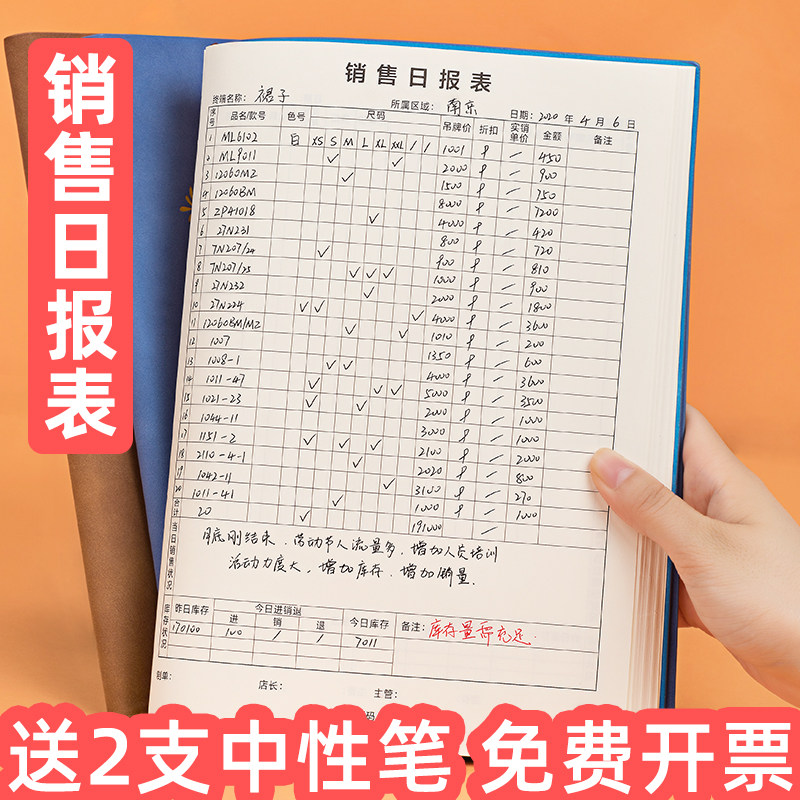 销售日报表
销售日报表
终端名称: 裙子 所属区域: 南京 日期: 2020 年 4 月 6 日
序号 品名/款号 色号 尺码 吊牌价 折扣 实销单价 金额 备注
XS S M L XL XXL / /
1 ML6102 白 1001 9 — 450
2 ML9011 2000 9 — 900
3 12060MZ 1500 9 — 750
4 12060BM 8000 9 — 7200
5 ZP41018 4000 9 — 420
6 27N231 800 9 — 720
7 7N207/24 900 9 — 810
8 7N207/25 1000 9 — 900
9 27N232 2000 9 — 1800
10 27N224 4000 9 — 3600
11 12060BM/MZ 1010 9 — 200
12 1007 1350 9 — 600
13 1008-1 4000 9 — 3600
14 1011-47 5000 9 — 3500
15 1021-23 2000 9 — 1000
16 1044-11 3000 9 — 1000
17 1151-2 2100 9 — 2000
18 2110-4-1 2020 9 — 800
19 1042-11 3100 9 — 270
20 1011-41 1000 9 — 1000
合计 20 191000 —
当日销售状况
月底刚结束，劳动节人流量多，增加人员培训
活动力度大，增加库存，增加销量。
库存状况 昨日库存 今日进销退 今日库存 备注: 库存量需充足.
进 销 退
170100 100 / / 7011
制单: 店长: 主管:
码
送2支中性笔 免费开票